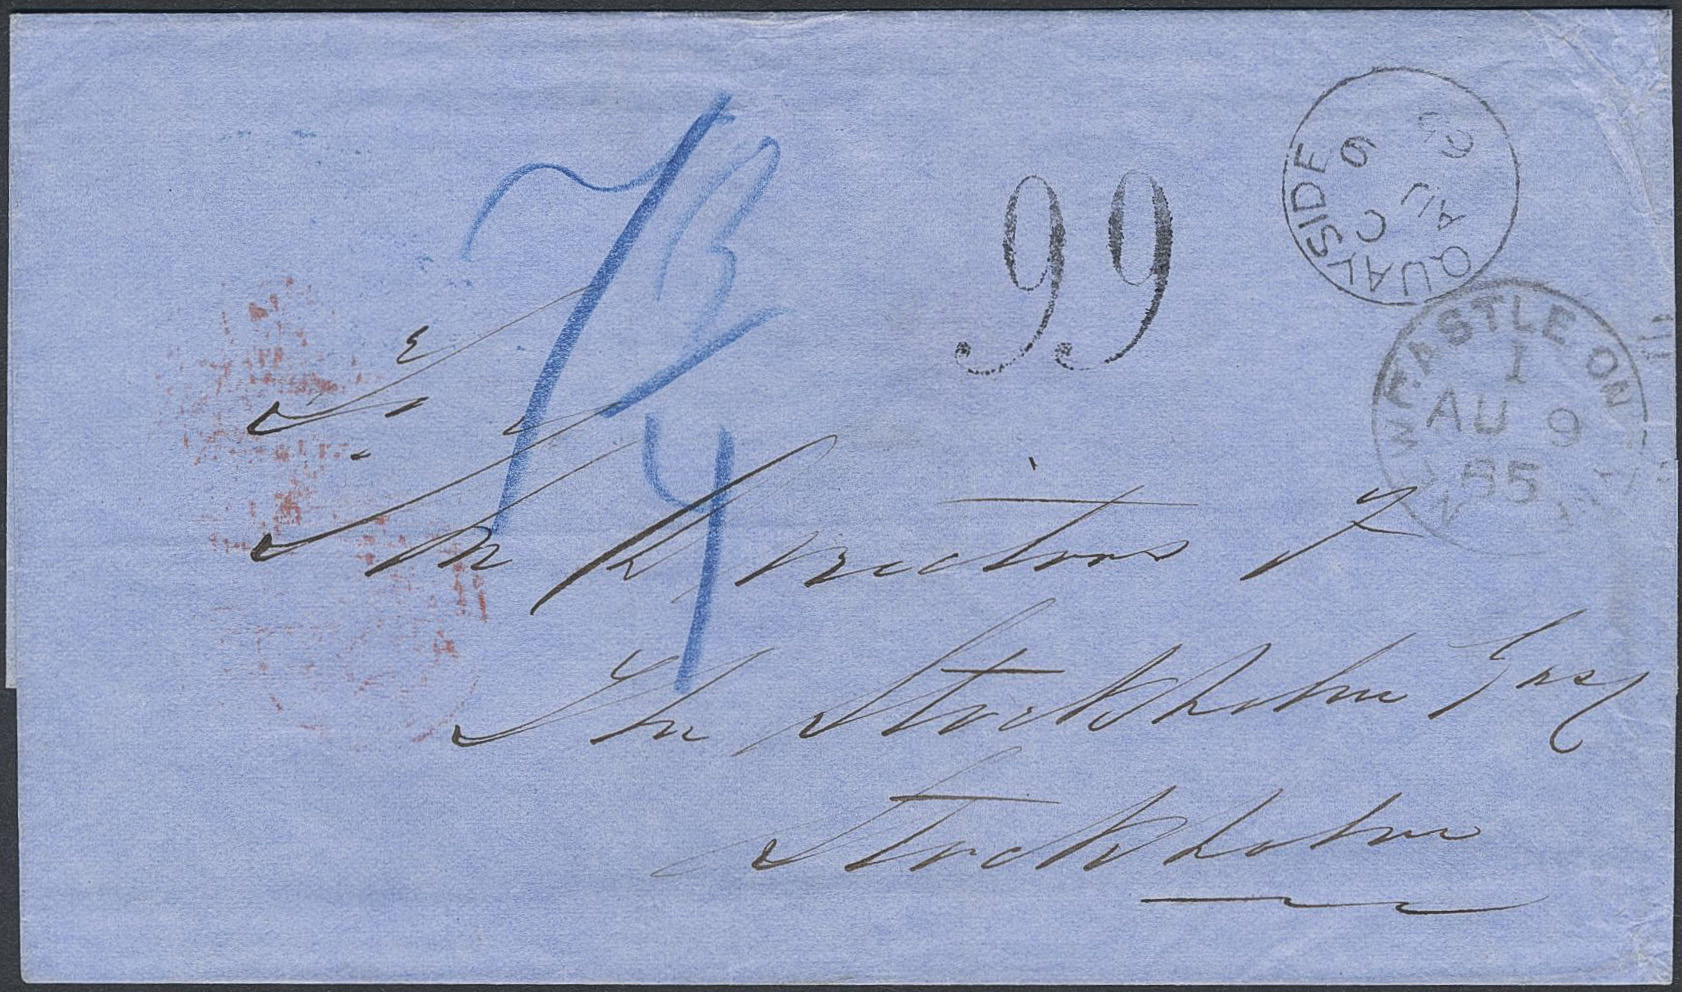 99
QUAYSIDE
C
AU
9
65
NEWCASTLE ON TYNE
1
AU 9
65
7
3/4
Directors of
The Stockholm Gas
Stockholm